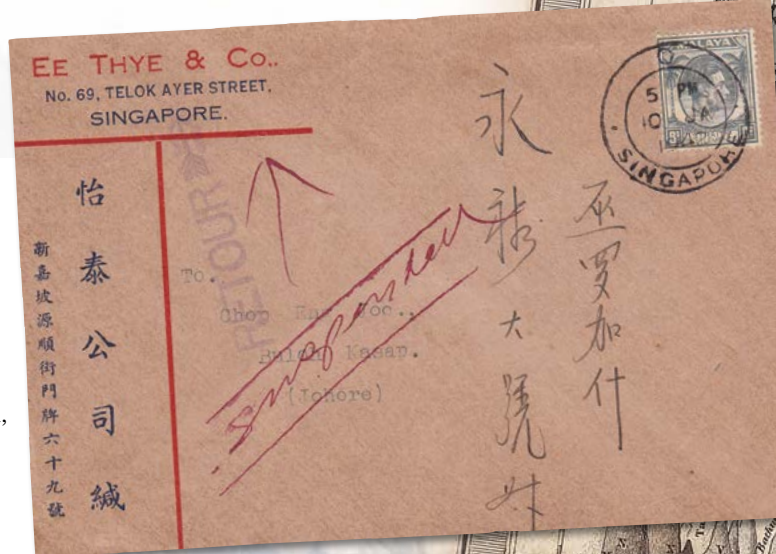 EE THYE & CO..
No. 69, TELOK AYER STREET.
SINGAPORE.
怡泰公司緘
新嘉坡源順街門牌六十九號
RETOUR
To.
Chop
(Johore)
Kasap.
suspended
永
大號
罗加什
MALAYA
5 PM
10 JA
SINGAPORE